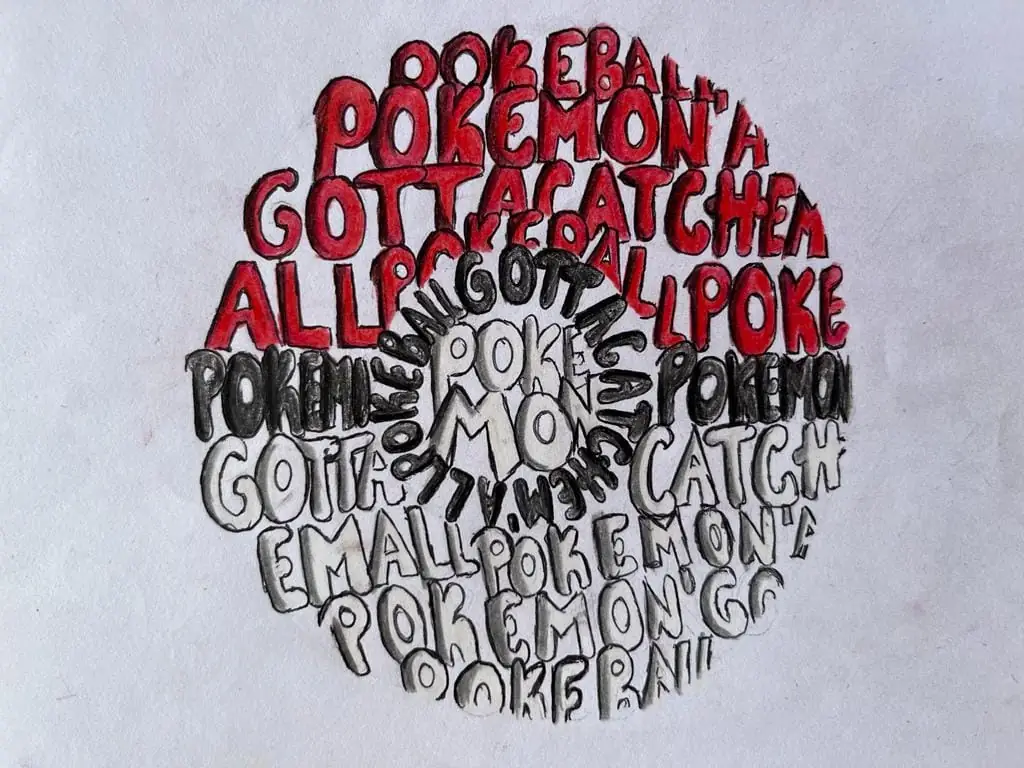 POKEBALL
POKEMON'A
GOTTACATCHEM
ALLPOKEBALLPOKE
POKEMON
POKEBALLGOTTACATCHEM'ALL
POKE
MON
POKEMON
GOTTA
CATCH
EMALLPOKEMON'A
POKEMON'GO
POKEBALL